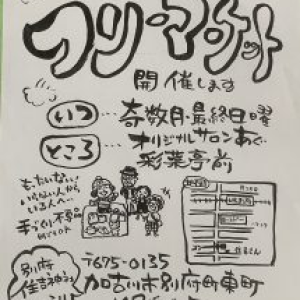 フリーマーケット
開催します
いつ 奇数月・最終日曜
ところ オリジナルサロンあぐ
彩菜亭前
もったいない!
いらない人から
いる人へ…
手づくり・不用品
〒675-0135
加古川市別府町東町
別府
住吉神社